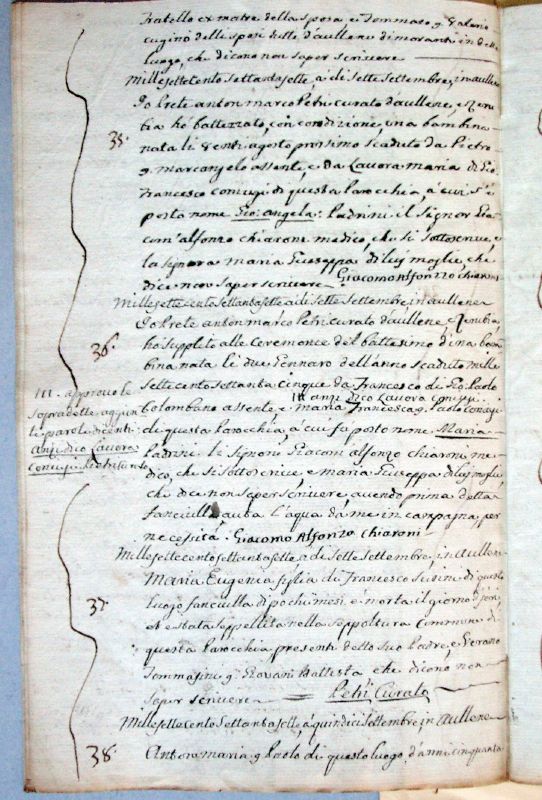 fratello ex matre della sposa e Tommaso q. Valerio
cugino delli sposi tutti d'aullene dimoranti in detto
luogo, che dicono non saper scrivere
Millesettecento settantasette, a di sette settembre, in aullene
Io Prete anton marco Petri curato d'aullene, e Zerubia
35.
ho battezzato, con condizione, una bambina
nata li venti agosto prossimo scaduto da Pietro
q. marcangelo assente, e da Lavora maria di Gio.
francesco conjugi di questa Parocchia, a cui s'è
posto nome Gio: angela: Padrini il signor Gia-
com' alfonzo chiaroni medico, che si sottoscrive, e
la signora maria Giuseppa di lui moglie che
dice non saper scrivere Giacomo Alfonzo chiaroni
Millesettecentosettantasette a di sette settembre in aullene
Io Prete anton marco Petri curato d'aullene, e Zerubia
36.
ho supplito alle ceremonie del battesimo di una bam
bina nata li due Gennaro dell'anno scaduto mille
settecento settanta cinque da francesco di Gio. Paolo
III anzi dico Lavora conjugi
Colombano assente e maria francesca q. Paolo conjugi
III. approvo le
sopradette aggiun
te parole dicenti
anzi dico Lavora
conjugi
di questa Parocchia, a cui fu posto nome Maria
Padrini li signori Giacom' alfonzo chiaroni me-
dico, che si sottoscrive, e maria Giuseppa di lui moglie
che dice non saper scrivere, avendo prima detta
fanciulla avuta l'acqua da me in campagna, per
necessità. Giacomo Alfonzo Chiaroni
Millesettecentosettantasette a di sette settembre, in aullene
Maria Eugenia figlia di francesco di questo
37.
luogo fanciulla di pochi mesi è morta il giorno di jeri
et è stata seppellita nella seppoltura Commune di
questa Parocchia presenti detto suo Padre, e
Tommasini q. Giovan Battista che dicono non
saper scrivere = Petri Curato
Millesettecento settantasette, a quindici settembre in aullene
38.
Anton maria q. Paolo di questo luogo, d'anni cinquanta